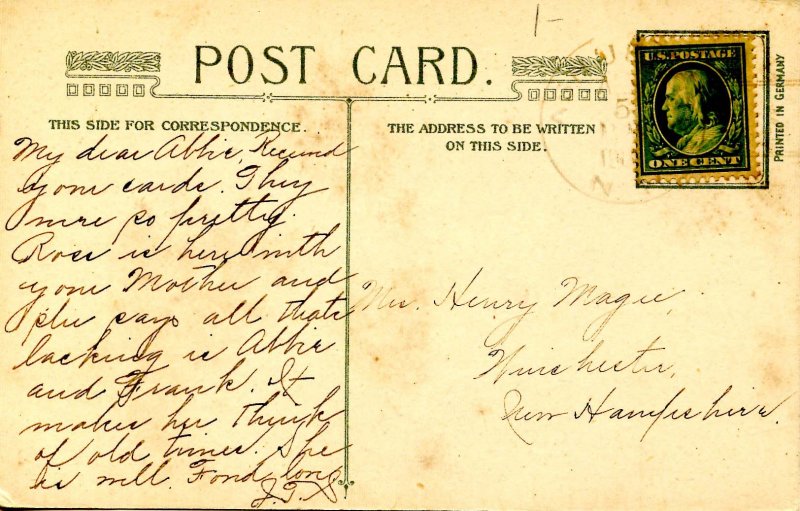 POST CARD.
THIS SIDE FOR CORRESPONDENCE.
My dear Abbie, Received
your cards. They
were so pretty.
Rose is here with
your Mother and
she says all thats
lacking is Abbie
and Frank. It
makes her think
of old times. She
is well. Fond love
THE ADDRESS TO BE WRITTEN
ON THIS SIDE.
U.S. POSTAGE
ONE CENT
PRINTED IN GERMANY
Mrs. Henry Magee,
Winchester,
New Hampshire.